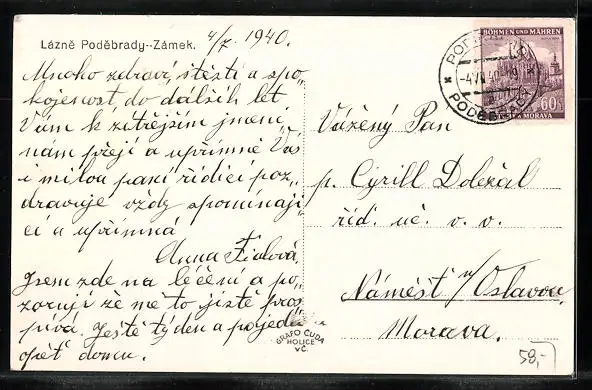 Lázně Poděbrady--Zámek.
4/7. 1940.
Mnoho zdraví, štěstí a spo„
kojenost do dalších let
Vám k zítřejším jmeni„
nám přeji a upřímně Vás
i milou paní řídící poz„
dravuje vždy spomínají„
cí a upřímná
Anna Fialová
Jsem zde na léčení a po„
zoruji že mě to jistě pros„
pívá. Ještě týden a pojedu
opět domu.
BÖHMEN UND MÄHREN
60
MORAVA
PODĚBRADY
-4.VII.40
Vážený Pan
p. Cyrill Doležal
říd. uč. v. v.
Náměšť n/Oslavou
Morava.
GRAFO ČUDA
HOLICE
V.Č.
58,-